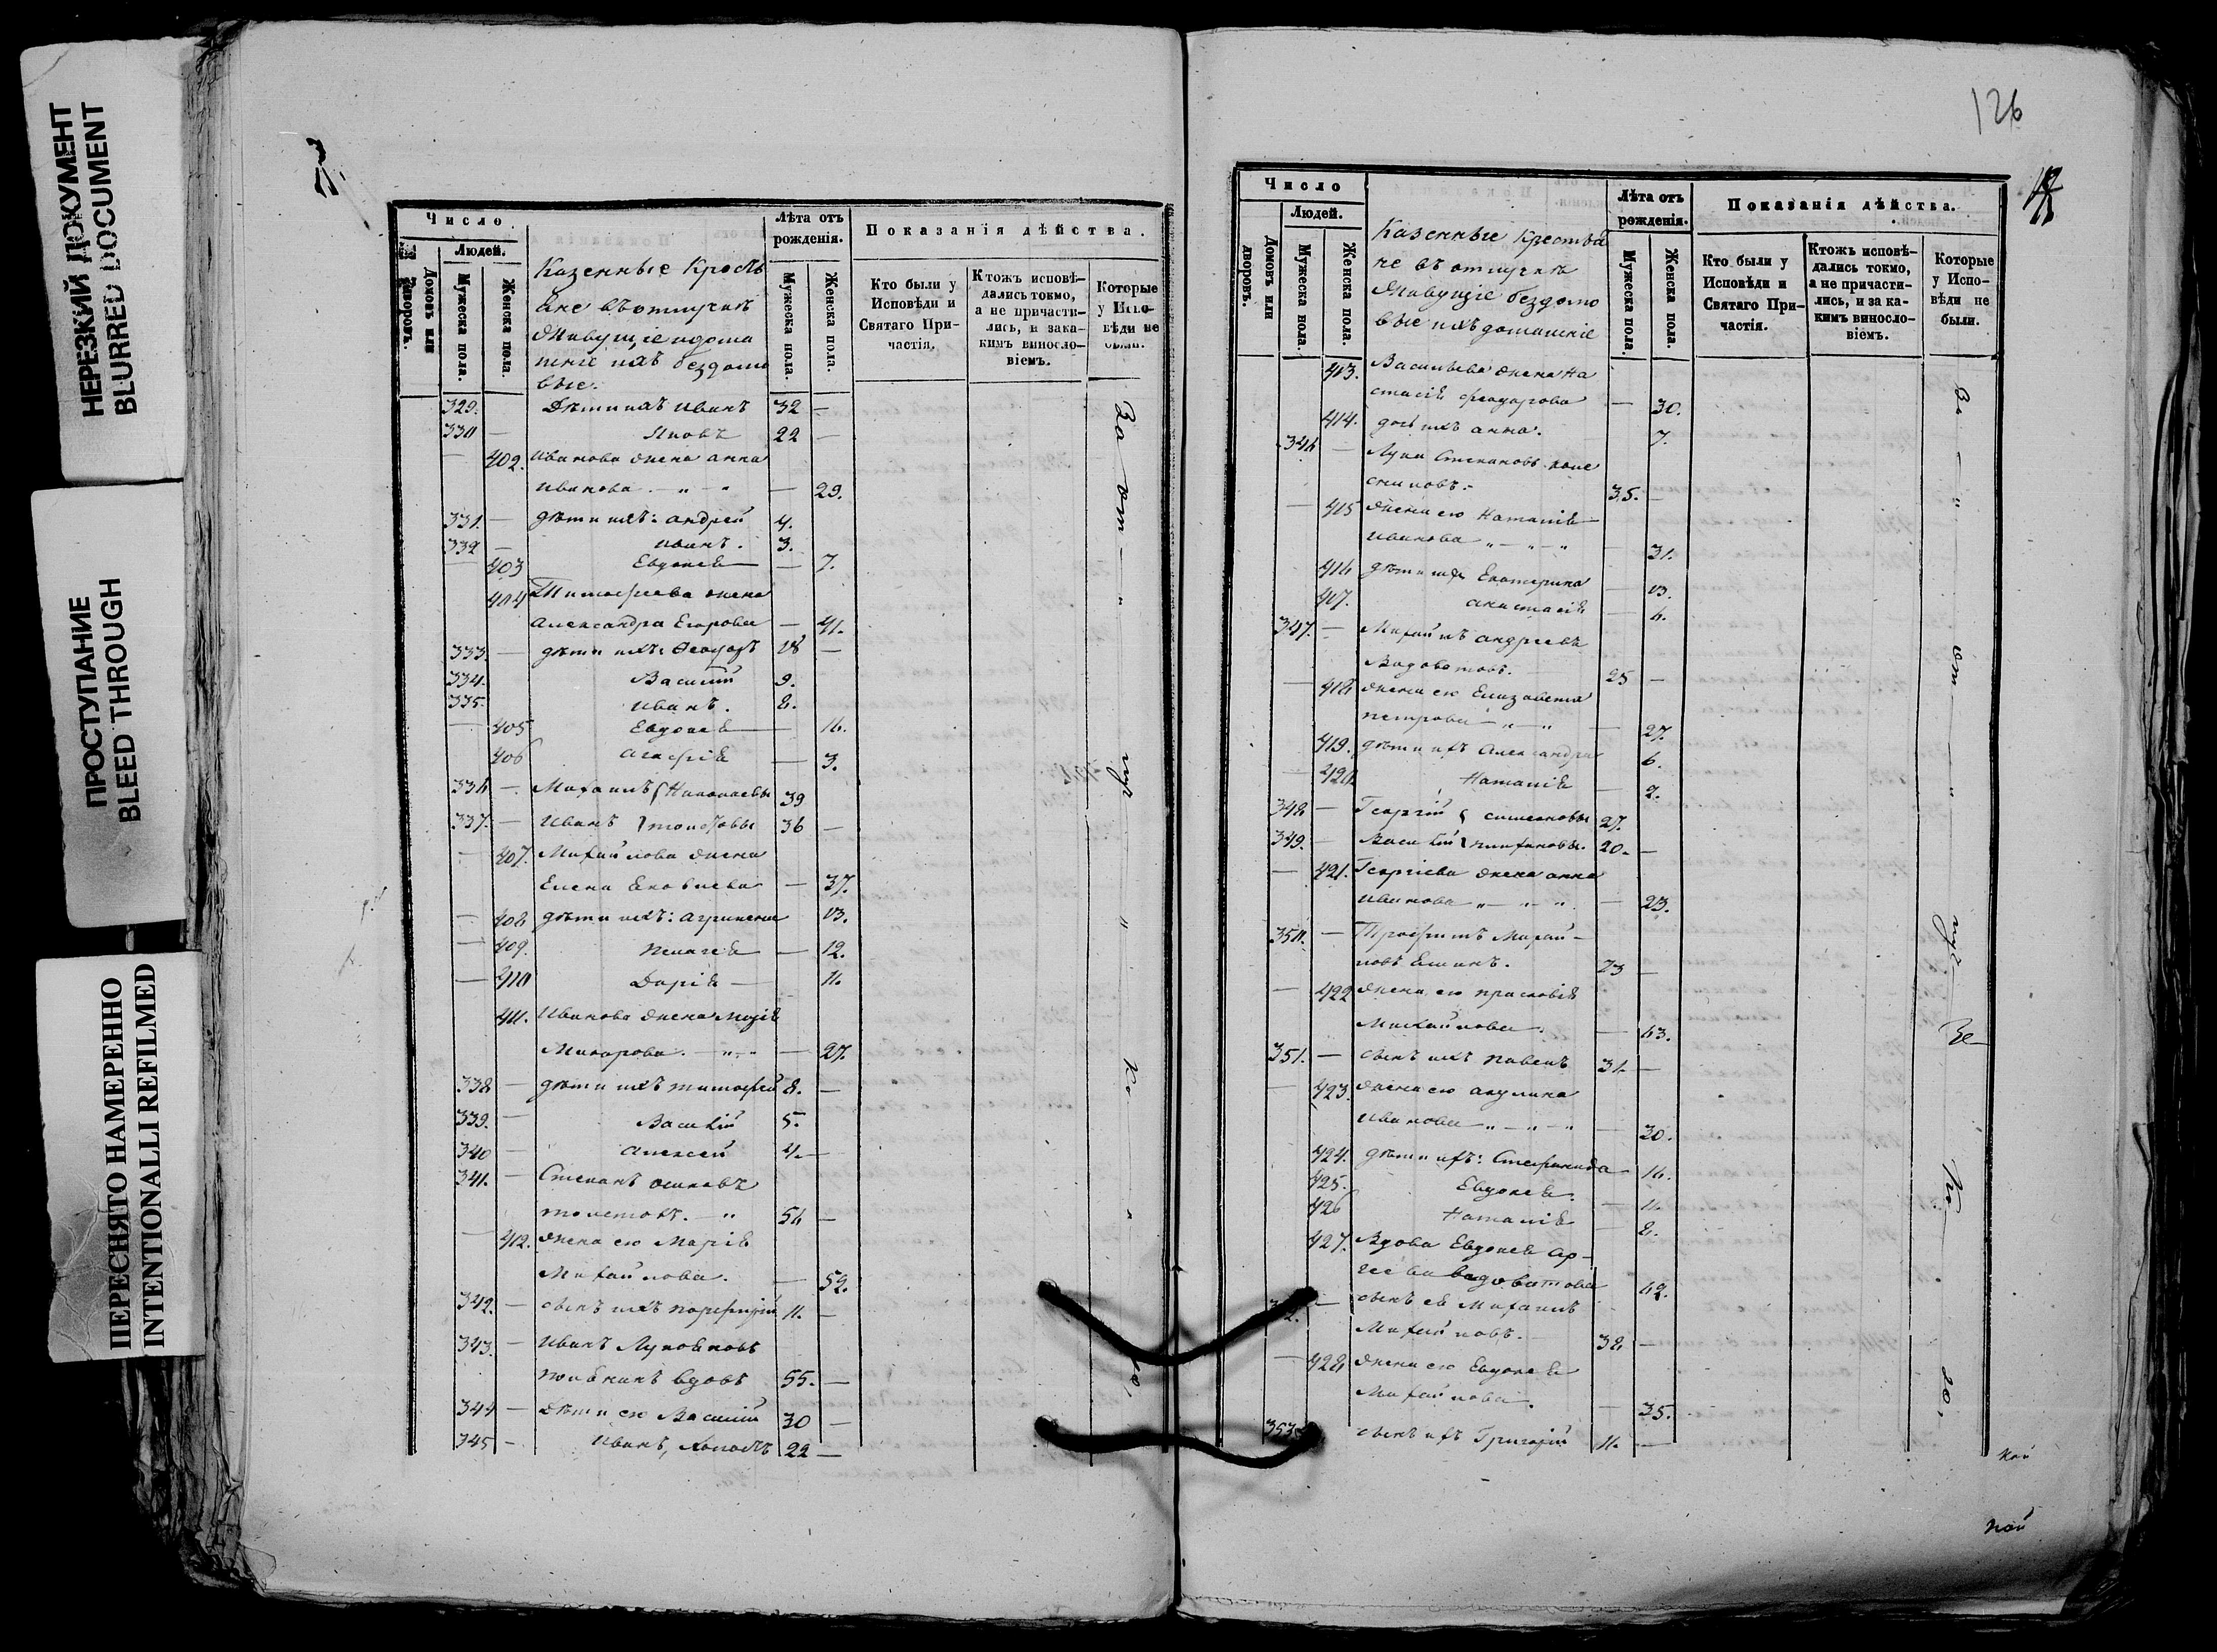 НЕРЕЗКИЙ ДОКУМЕНТ
BLURRED DOCUMENT
ПРОСТУПАНИЕ
BLEED THROUGH
ПЕРЕСНЯТО НАМЕРЕННО
INTENTIONALLI REFILMED
Число
Людей.
Домовъ или дворовъ.
Мужеска пола.
Женска пола.
Казенные Кресть
яне въ отлучкѣ
Живущіе и дома
шніе ихъ бездомо
вые.
Лѣта отъ рожденія.
Мужеска пола.
Женска пола.
Показанія дѣйства.
Кто были у Исповѣди и Святаго Причастія.
Ктожъ исповѣдались токмо, а не причастились, и за какимъ винословіемъ.
Которые у Исповѣди не были.
329. Дѣти ихъ Иванъ 32 —
330 — Яковъ 22 —
— 402. Иванова жена анна
Иванова — 29.
331. — дѣти ихъ: андрей 4.
332 — Иванъ. 3.
— 403 Евдокія — 7.
404 Тимофеева жена
александра Егорова — 41.
333. — дѣти ихъ: Феодоръ 18 —
334. Василій 9.
335. Иванъ. 8.
— 405 Евдокія — 16.
406 — 3.
336 — Михаилъ { Николаевы 39
337. — Иванъ } толстовы 36 —
— 407. Михайлова жена
Елена Яковлева — 37.
— 408 дѣти ихъ: агрипена 13.
— 409. Пелагея — 12.
— 410 Дарія — 11.
411. Иванова жена Марія
Макарова. — 27.
338 — дѣти ихъ тимофей 8. —
339. — Василій 5.
340 — алексей 4. —
341. — Степанъ осиповъ
толстовъ. 56 —
— 412. жена его Марія
Михайлова. — 52.
342. — сынъ ихъ порфирій 11. —
343. — Иванъ Лукояновъ
вдовъ 55. —
344 — Дѣти его Василій 30 —
345 — Иванъ, холостъ 22 —
За от луч ко ю,
126
Число
Людей.
Домовъ или дворовъ.
Мужеска пола.
Женска пола.
Казенные Крестья
не въ отлучкѣ
Живущіе бездомо
вые и ихъ домашніе
Лѣта отъ рожденія.
Мужеска пола.
Женска пола.
Показанія дѣйства.
Кто были у Исповѣди и Святаго Причастія.
Ктожъ исповѣдались токмо, а не причастились, и за какимъ винословіемъ.
Которые у Исповѣди не были.
413. Васильева жена На
стасія феодорова — 30.
414. дочь ихъ анна. 7.
346 — Лука Степановъ
35. —
— 415 жена его Наталія
Иванова — 31.
416 дѣти ихъ Екатерина — 13.
417. анастасія — 6.
347. — Михаилъ андреевъ
Видовотовъ. 25 —
— 418 жена его Елизавета
петрова — 27.
419. дѣти ихъ александра 6.
— 420 Наталія — 2.
348 — Георгій { симеоновы 27.
349. — Василій } 20. —
— 421. Георгіева жена анна
Иванова — 23.
350. — Трофимъ Михай-
ловъ 73 —
— 422 жена его прасковія
Михайлова — 63.
351. — сынъ ихъ павелъ 31. —
— 423. жена его акулина
Иванова — 30.
424. дѣти ихъ: Стефанида 16.
425. Евдокея. — 11.
426 Наталія — 8.
427. Вдова Евдокея
62.
352. — сынъ ея Михаилъ
Михайловъ. 38 —
— 428 жена его Евдокея
Михайлова. — 35.
353 сынъ ихъ Григорій 11. —
За от луч ко ю,